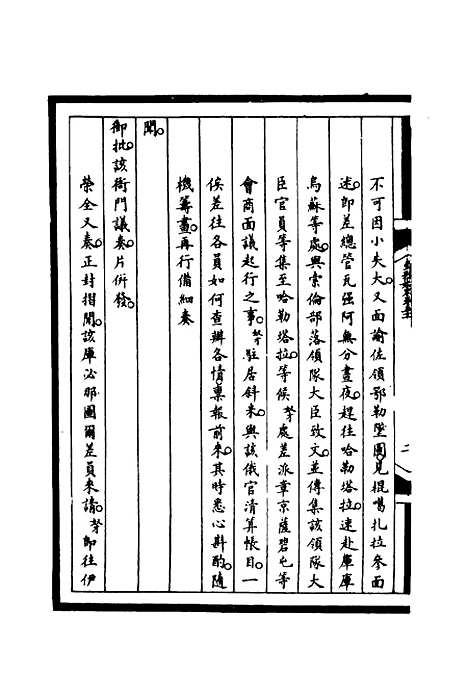 不可因小失大。又面諭佐領鄂勒墜圖見棍噶扎拉參面
述。即差總管瓦强阿無分晝夜。趕往哈勒塔拉。速赴庫庫
烏蘇等處。與索倫部落領隊大臣致文。並傳集該領隊大
臣官員等集至哈勒塔拉。等候奴才處差派章京薩碧屯等
會商面議起行之事。奴才駐居斜米。與該俄官清算帳目。一
俟差往各員如何查辦各情。稟報前來。其時悉心斟酌。隨
機籌畫。再行備細奏
聞。
御批。該衙門議奏。片併發。
榮全又奏。正封摺間。該庫必那圖爾差員來請。奴才即往伊
二